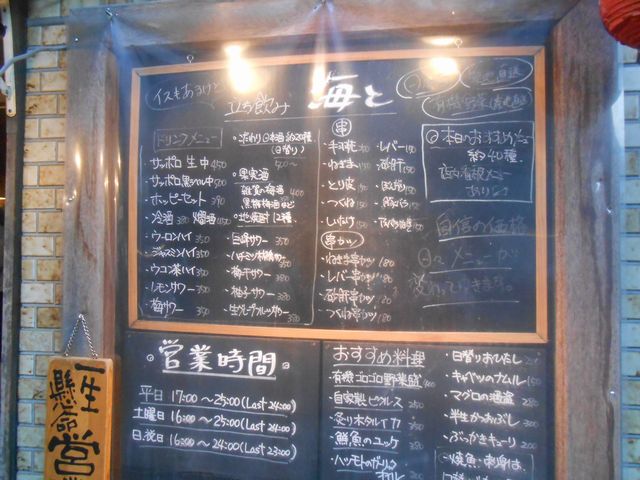 イスもあるけど
立ち飲み
海と
ドリンクメニュー
・サッポロ 生中 450
・サッポロ黒ラベル中 500
・ホッピーセット 390
・冷酒 380 燗酒 450
・ウーロンハイ 350
・ジャスミンハイ 350
・ウコン茶ハイ 350
・レモンサワー 350
・梅サワー 350
・こだわり日本酒 約20種
(日替り)
500～
・果実酒
雑賀の梅酒 400
黒糖梅酒など
・地焼酎 12種
・巨峰サワー 350
・ハチミツ本格サワー
・梅干サワー 380
・柚子サワー 380
・生グレープフルーツサワー 380
串
・手羽先
・ねぎま 150
・とり皮 150
・つくね 150
・しいたけ
・レバー 150
・砂肝 150
・ぼんぼち
・豚バラ
串カツ
・ねぎま串カツ 180
・レバー串カツ 180
・砂肝串カツ 180
・つくね串カツ 180
産地直送
有機野菜 産地直送
本日のおすすめメニュー
約40種
店内看板メニュー
あります
自信の価格
日々メニューが
変わって行きます。
営業時間
平日 17:00～25:00(Last 24:00)
土曜日 16:00～25:00(Last 24:00)
日.祝日 16:00～24:00(Last 23:00)
おすすめ料理
・有機ゴロゴロ野菜盛 400
・自家製ピクルス 250
・炙り本タルイカ 250
・鮮魚のユッケ 380
・ハツモトのガーリック
・日替りおひたし 250
・キャベツのナムル 150
・マグロの酒盗 280
・半生かつおぶし 300
・ぶっかきキューリ 200
・焼魚・刺身は、
一生
懸命
営